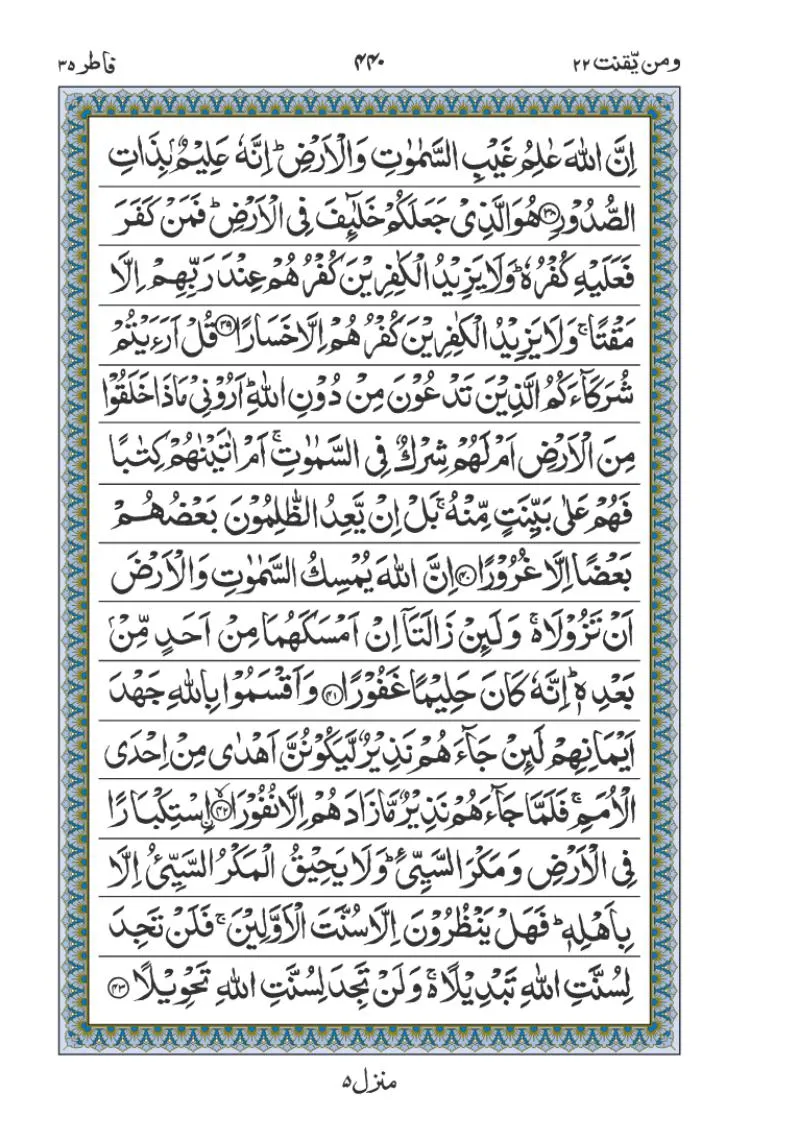 ومن یّقنت ۲۲ ۴۴۰ فاطر ۳۵
اِنَّ اللّٰهَ عٰلِمُ غَیۡبِ السَّمٰوٰتِ وَالۡاَرۡضِ ؕ اِنَّهٗ عَلِیۡمٌۢ بِذَاتِ
الصُّدُوۡرِ ﴿۳۸﴾ هُوَ الَّذِیۡ جَعَلَكُمۡ خَلٰٓئِفَ فِی الۡاَرۡضِ ؕ فَمَنۡ كَفَرَ
فَعَلَیۡهِ كُفۡرُهٗ ؕ وَلَا یَزِیۡدُ الۡكٰفِرِیۡنَ كُفۡرُهُمۡ عِنۡدَ رَبِّهِمۡ اِلَّا
مَقۡتًا ۚ وَلَا یَزِیۡدُ الۡكٰفِرِیۡنَ كُفۡرُهُمۡ اِلَّا خَسَارًا ﴿۳۹﴾ قُلۡ اَرَءَیۡتُمۡ
شُرَكَآءَكُمُ الَّذِیۡنَ تَدۡعُوۡنَ مِنۡ دُوۡنِ اللّٰهِ ؕ اَرُوۡنِیۡ مَاذَا خَلَقُوۡا
مِنَ الۡاَرۡضِ اَمۡ لَهُمۡ شِرۡكٌ فِی السَّمٰوٰتِ ۚ اَمۡ اٰتَیۡنٰهُمۡ كِتٰبًا
فَهُمۡ عَلٰی بَیِّنَتٍ مِّنۡهُ ۚ بَلۡ اِنۡ یَّعِدُ الظّٰلِمُوۡنَ بَعۡضُهُمۡ
بَعۡضًا اِلَّا غُرُوۡرًا ﴿۴۰﴾ اِنَّ اللّٰهَ یُمۡسِكُ السَّمٰوٰتِ وَالۡاَرۡضَ
اَنۡ تَزُوۡلَا ۬ۚ وَلَئِنۡ زَالَتَاۤ اِنۡ اَمۡسَكَهُمَا مِنۡ اَحَدٍ مِّنۡۢ
بَعۡدِهٖ ؕ اِنَّهٗ كَانَ حَلِیۡمًا غَفُوۡرًا ﴿۴۱﴾ وَاَقۡسَمُوۡا بِاللّٰهِ جَهۡدَ
اَیۡمَانِهِمۡ لَئِنۡ جَآءَهُمۡ نَذِیۡرٌ لَّیَكُوۡنُنَّ اَهۡدٰی مِنۡ اِحۡدَی
الۡاُمَمِ ۚ فَلَمَّا جَآءَهُمۡ نَذِیۡرٌ مَّا زَادَهُمۡ اِلَّا نُفُوۡرًا ﴿۴۲﴾ اۨسۡتِكۡبَارًا
فِی الۡاَرۡضِ وَمَكۡرَ السَّیِّئِ ؕ وَلَا یَحِیۡقُ الۡمَكۡرُ السَّیِّئُ اِلَّا
بِاَهۡلِهٖ ؕ فَهَلۡ یَنۡظُرُوۡنَ اِلَّا سُنَّتَ الۡاَوَّلِیۡنَ ۚ فَلَنۡ تَجِدَ
لِسُنَّتِ اللّٰهِ تَبۡدِیۡلًا ۬ۚ وَلَنۡ تَجِدَ لِسُنَّتِ اللّٰهِ تَحۡوِیۡلًا ﴿۴۳﴾
منزل ۵